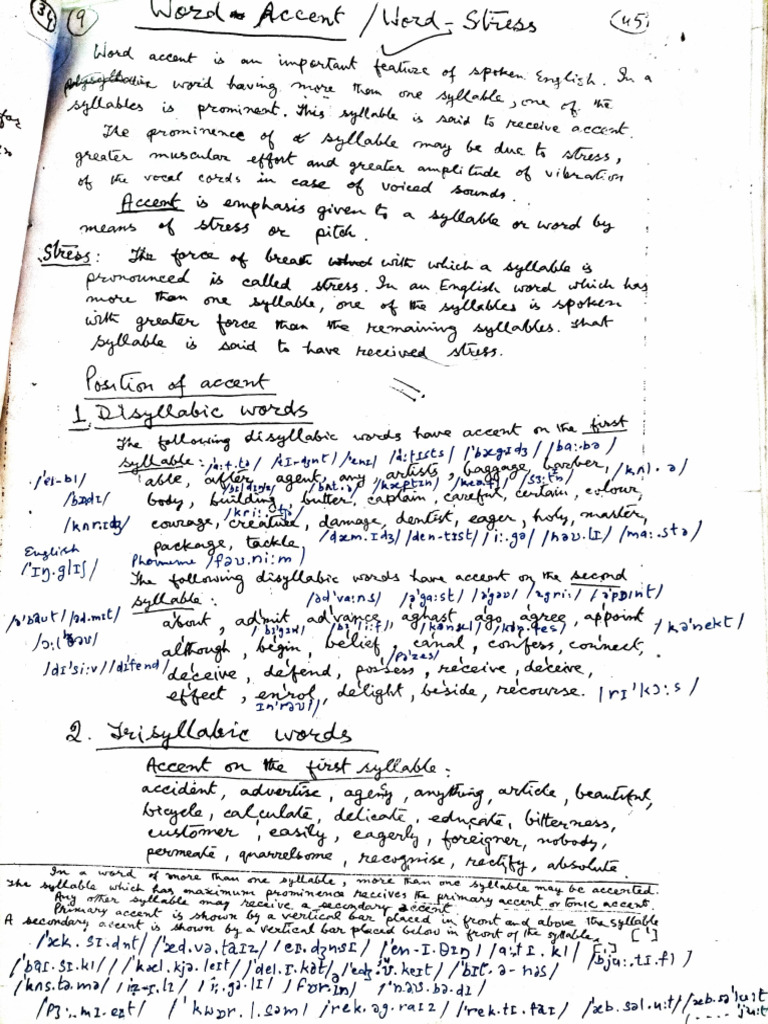 34 9 Word - Accent / Word - Stress 45
Word accent is an important feature of spoken English. In a
word having more than one syllable, one of the
syllables is prominent. This syllable is said to receive accent.
The prominence of a syllable may be due to stress,
greater muscular effort and greater amplitude of vibration
of the vocal cords in case of voiced sounds.
Accent is emphasis given to a syllable or word by
means of stress or pitch.
Stress: The force of breath with which a syllable is
pronounced is called stress. In an English word which has
more than one syllable, one of the syllables is spoken
with greater force than the remaining syllables. That
syllable is said to have received stress.
Position of accent
1. Disyllabic words
The following disyllabic words have accent on the first
syllable:
/'eɪ-bl/ able, after, agent, any, artists, baggage, barber, /kʌl.ə/
/bɒdɪ/ body, building, butter, captain, careful, certain, colour,
/kʌr.ɪdʒ/ courage, creature, damage, dentist, eager, holy, master,
package, tackle /dæm.ɪdʒ/ /den-tɪst/ /i:.gə/ /həʊ.lɪ/ /ma:.stə/
English
/'ɪŋ.glɪʃ/ Phoneme /fəʊ.ni:m/
The following disyllabic words have accent on the second
syllable: /əd'va:ns/ /ə'ga:st/ /ə'gəʊ/ /əgri:/ /əpɒɪnt/
/ə'baʊt/ /əd.mɪt/ about, admit, advance, aghast, ago, agree, appoint
although, begin, belief, canal, confess, connect, /kə'nekt/
/dɪ'si:v/ /dɪfend/ deceive, defend, possess, receive, deceive,
effect, enrol, delight, beside, recourse. /rɪ'kɔ:s/
2. Trisyllabic words
Accent on the first syllable:
accident, advertise, agency, anything, article, beautiful,
bicycle, calculate, delicate, educate, bitterness,
customer, easily, eagerly, foreigner, nobody,
permeate, quarrelsome, recognise, rectify, absolute.
In a word of more than one syllable, more than one syllable may be accented.
The syllable which has maximum prominence receives the primary accent or tonic accent.
Any other syllable may receive a secondary accent
Primary accent is shown by a vertical bar placed in front and above the syllable [']
A secondary accent is shown by a vertical bar placed below in front of the syllable. [,]
/'æk.sɪ.dnt/ /'æd.və.taɪz/ /eɪ.dʒnsɪ/ /'en-ɪ.θɪŋ/ /a:tɪ.kl/ /bju:.tɪ.fl/
/'baɪ.sɪ.kl/ /'kæl.kjə.leɪt/ /'del.ɪ.kət/ /'bɪt.ə-nəs/
/'kʌs.tə.mə/ /i:.gə.lɪ/ /'nəʊ.bə.dɪ/
/'kwɒr.l.səm/ /'rek.əg.raɪz/ /'rek.tɪ.faɪ/